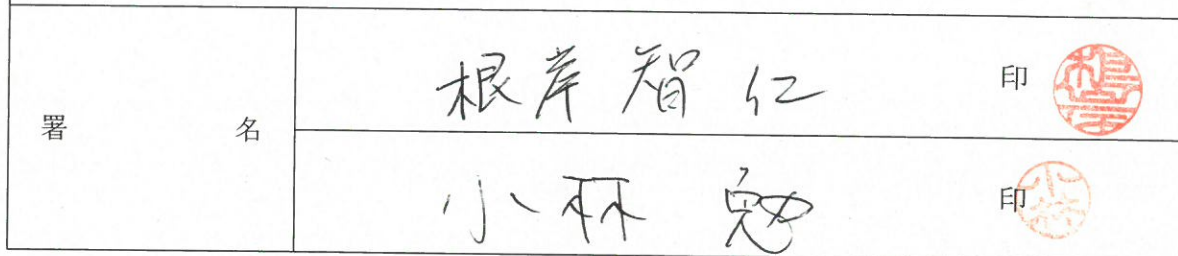 署名
根岸智仁 印
小林 勉 印
小林